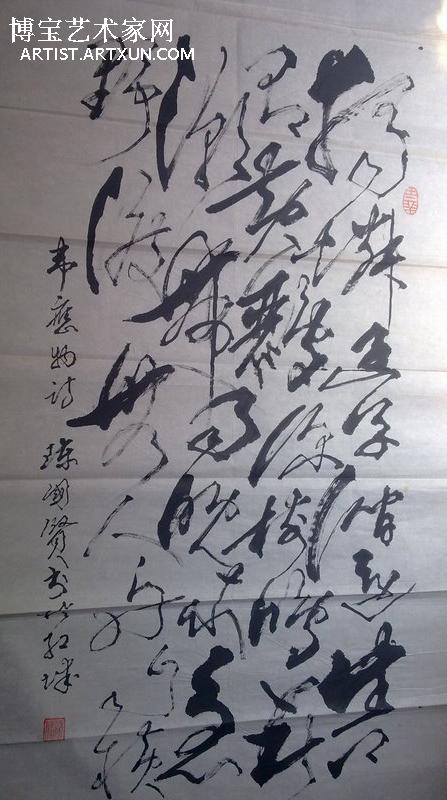 博宝艺术家网
ARTIST.ARTXUN.COM
独怜幽草涧边生上
有黄鹂深树鸣春
潮带雨晚来急
野渡无人舟自横
韦应物诗 国贤书于